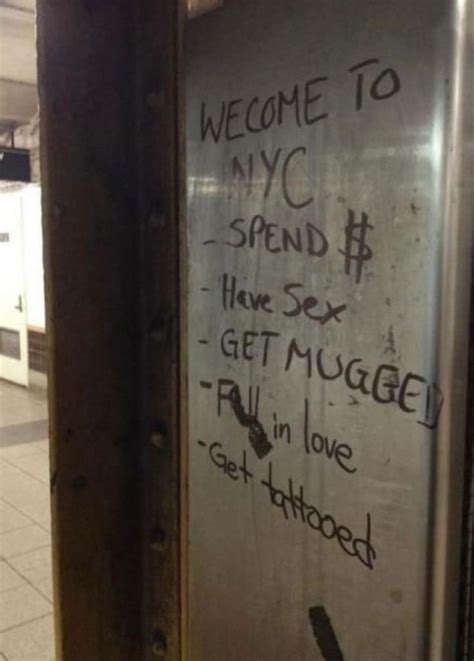 WECOME TO
NYC
- SPEND $
- Have Sex
- GET MUGGED
- Fall in love
- Get tattooed